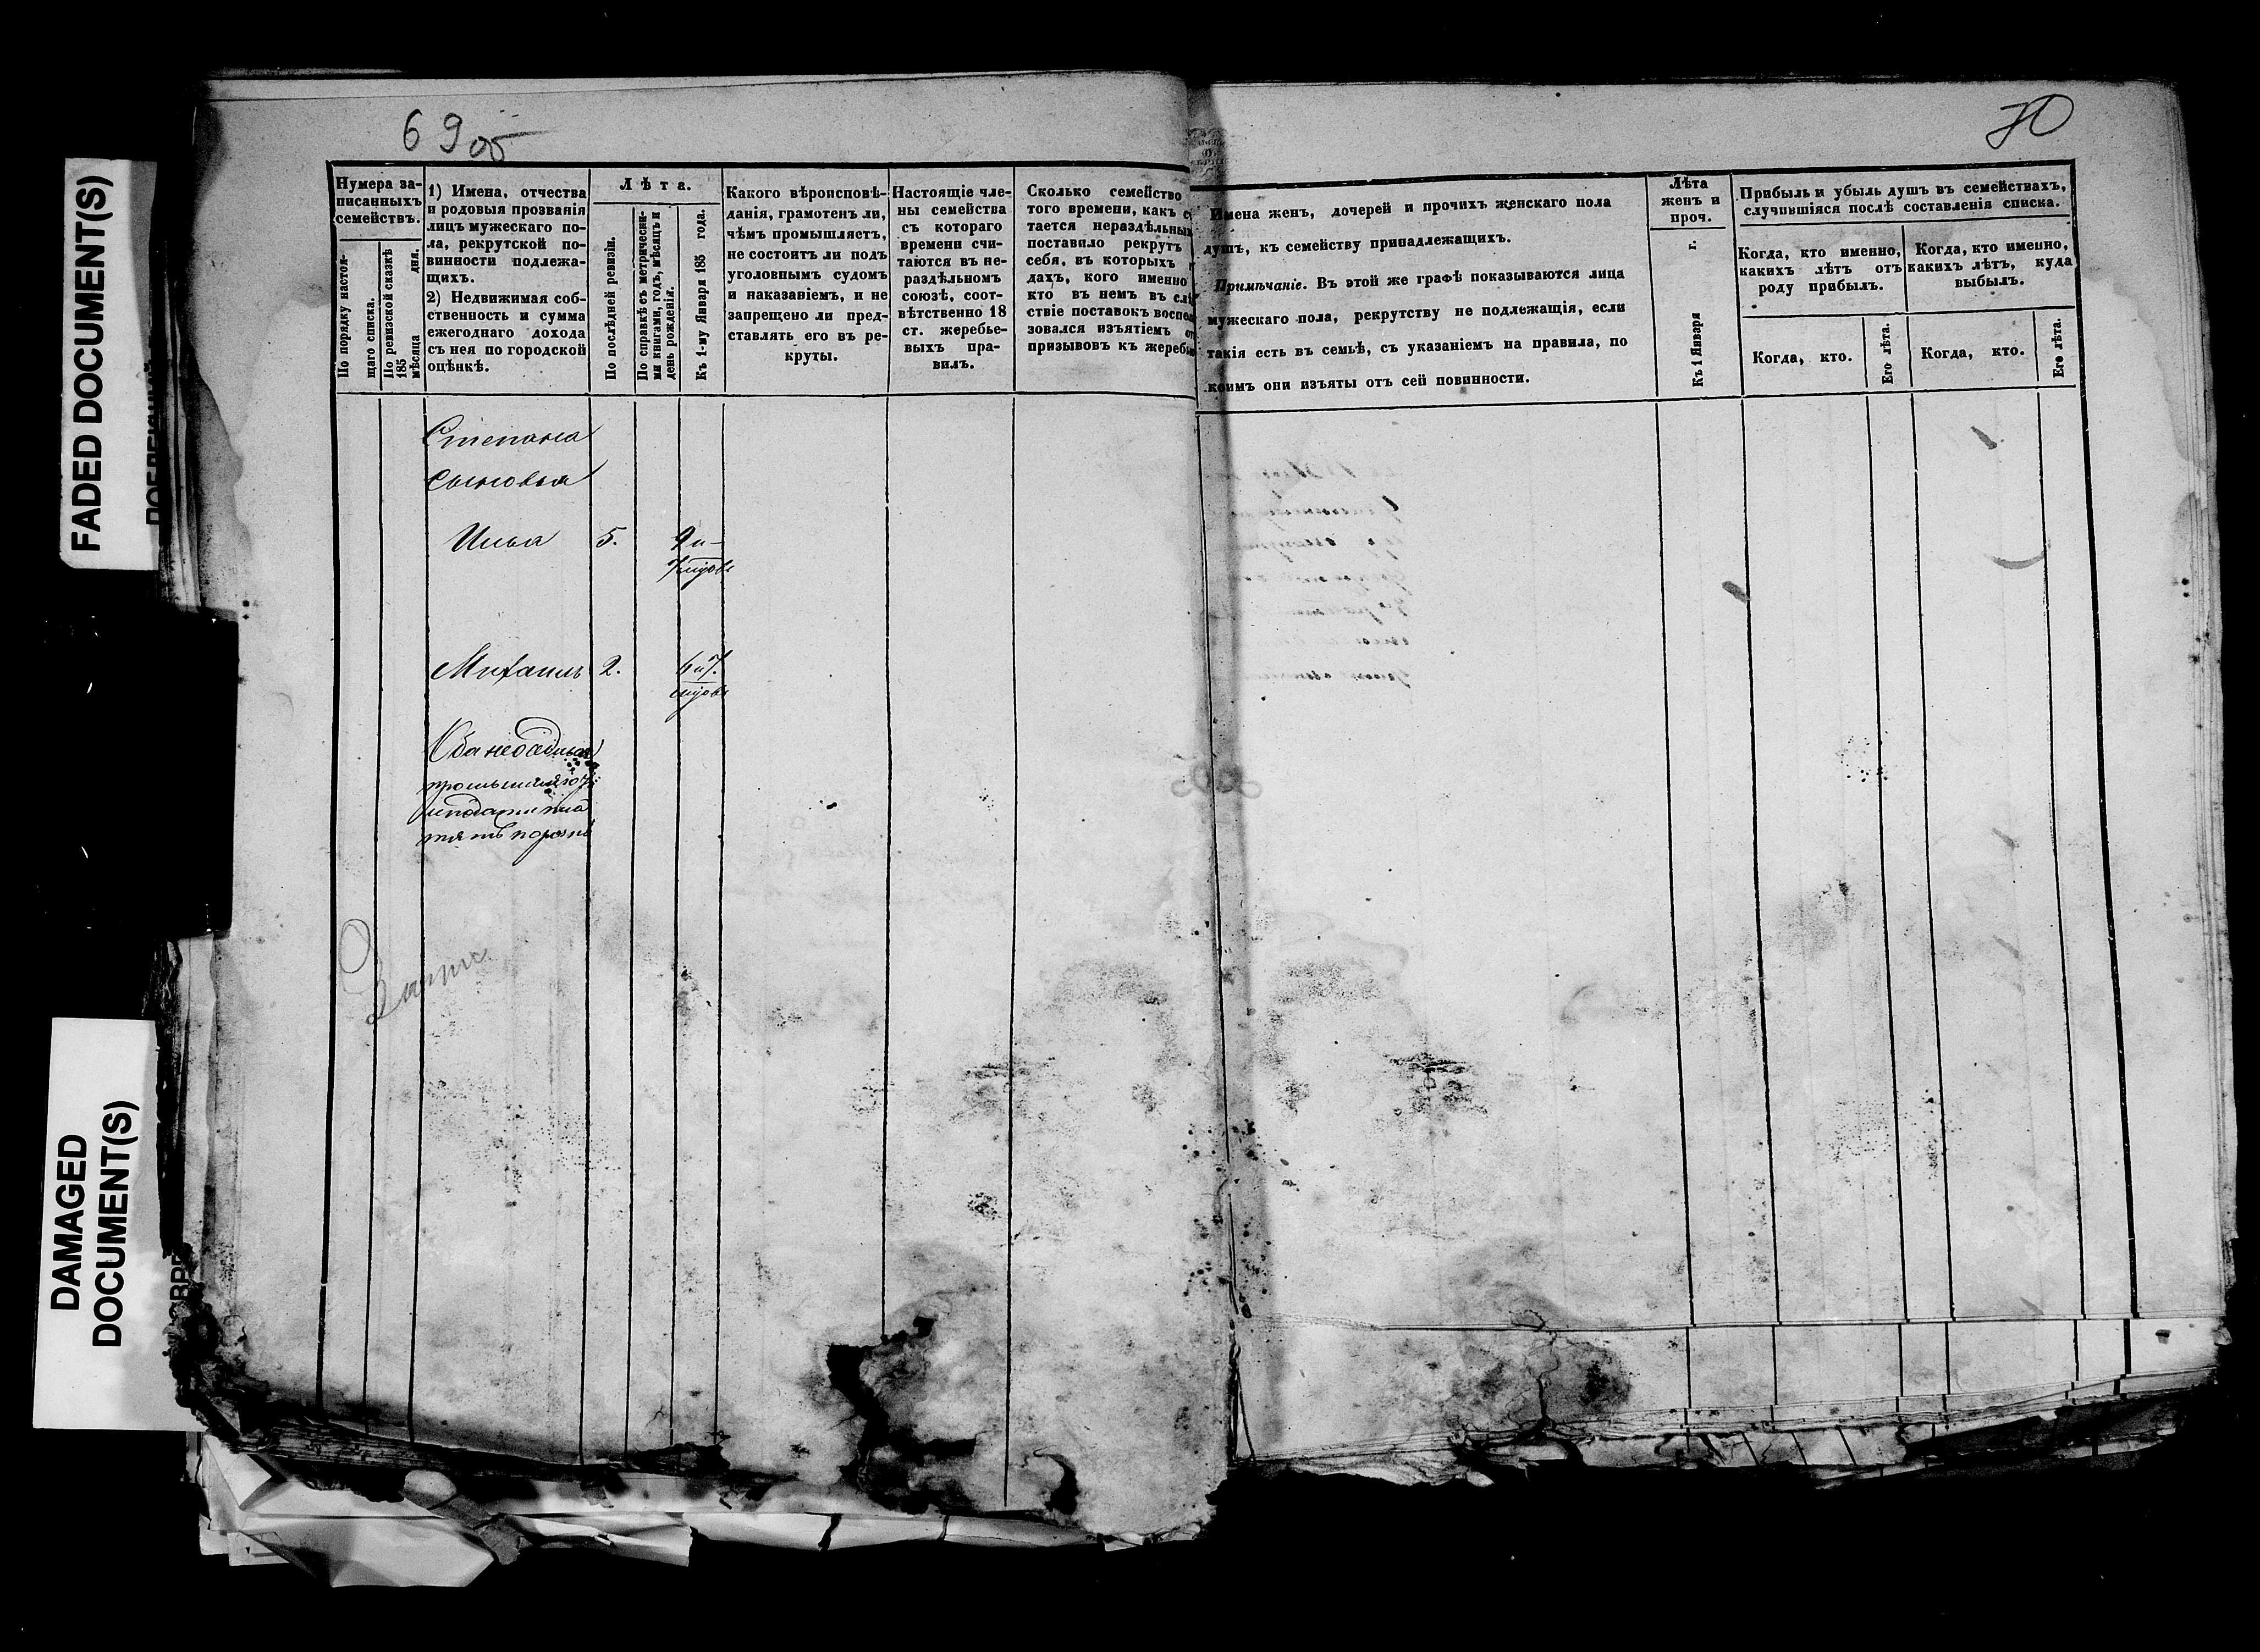 FADED DOCUMENT(S)
DAMAGED
DOCUMENT(S)
69 об
70
Нумера за-
писанныхъ
семействъ.
По порядку настоя-
щаго списка.
По ревизской сказкѣ
185
мѣсяца дня.
1) Имена, отчества
и родовыя прозванія
лицъ мужескаго по-
ла, рекрутской по-
винности подлежа-
щихъ.
2) Недвижимая соб-
ственность и сумма
ежегоднаго дохода
съ нея по городской
оцѣнкѣ.
Лѣта.
По послѣдней ревизіи.
По справкѣ съ метрически-
ми книгами, годъ, мѣсяцъ и
день рожденія.
Къ 1-му Января 185 года.
Какого вѣроисповѣ-
данія, грамотенъ ли,
чѣмъ промышляетъ,
не состоитъ ли подъ
уголовнымъ судомъ
и наказаніемъ, и не
запрещено ли пред-
ставлять его въ ре-
круты.
Настоящіе чле-
ны семейства
съ котораго
времени счи-
таются въ не-
раздѣльномъ
союзѣ, соот-
вѣтственно 18
ст. жеребье-
выхъ пра-
вилъ.
Сколько семейство
того времени, какъ с
тается нераздѣльным
поставило рекрутъ
себя, въ которыхъ
дахъ, кого именно
кто въ немъ въ слѣ
ствіе поставокъ воспол
зовался изъятіемъ от
призывовъ къ жеребью
Имена женъ, дочерей и прочихъ женскаго пола
душъ, къ семейству принадлежащихъ.
Примѣчаніе. Въ этой же графѣ показываются лица
мужескаго пола, рекрутству не подлежащія, если
такія есть въ семьѣ, съ указаніемъ на правила, по
коимъ они изъяты отъ сей повинности.
Лѣта
женъ и
проч.
Къ 1 Января г.
Прибыль и убыль душъ въ семействахъ,
случившіяся послѣ составленія списка.
Когда, кто именно,
какихъ лѣтъ отъ
роду прибылъ.
Когда, кто именно,
какихъ лѣтъ, куда
выбылъ.
Когда, кто.
Его лѣта.
Когда, кто.
Его лѣта.
Степана
сыновья
Илья 5. 9 и
Михаилъ 2. 6 и 7.